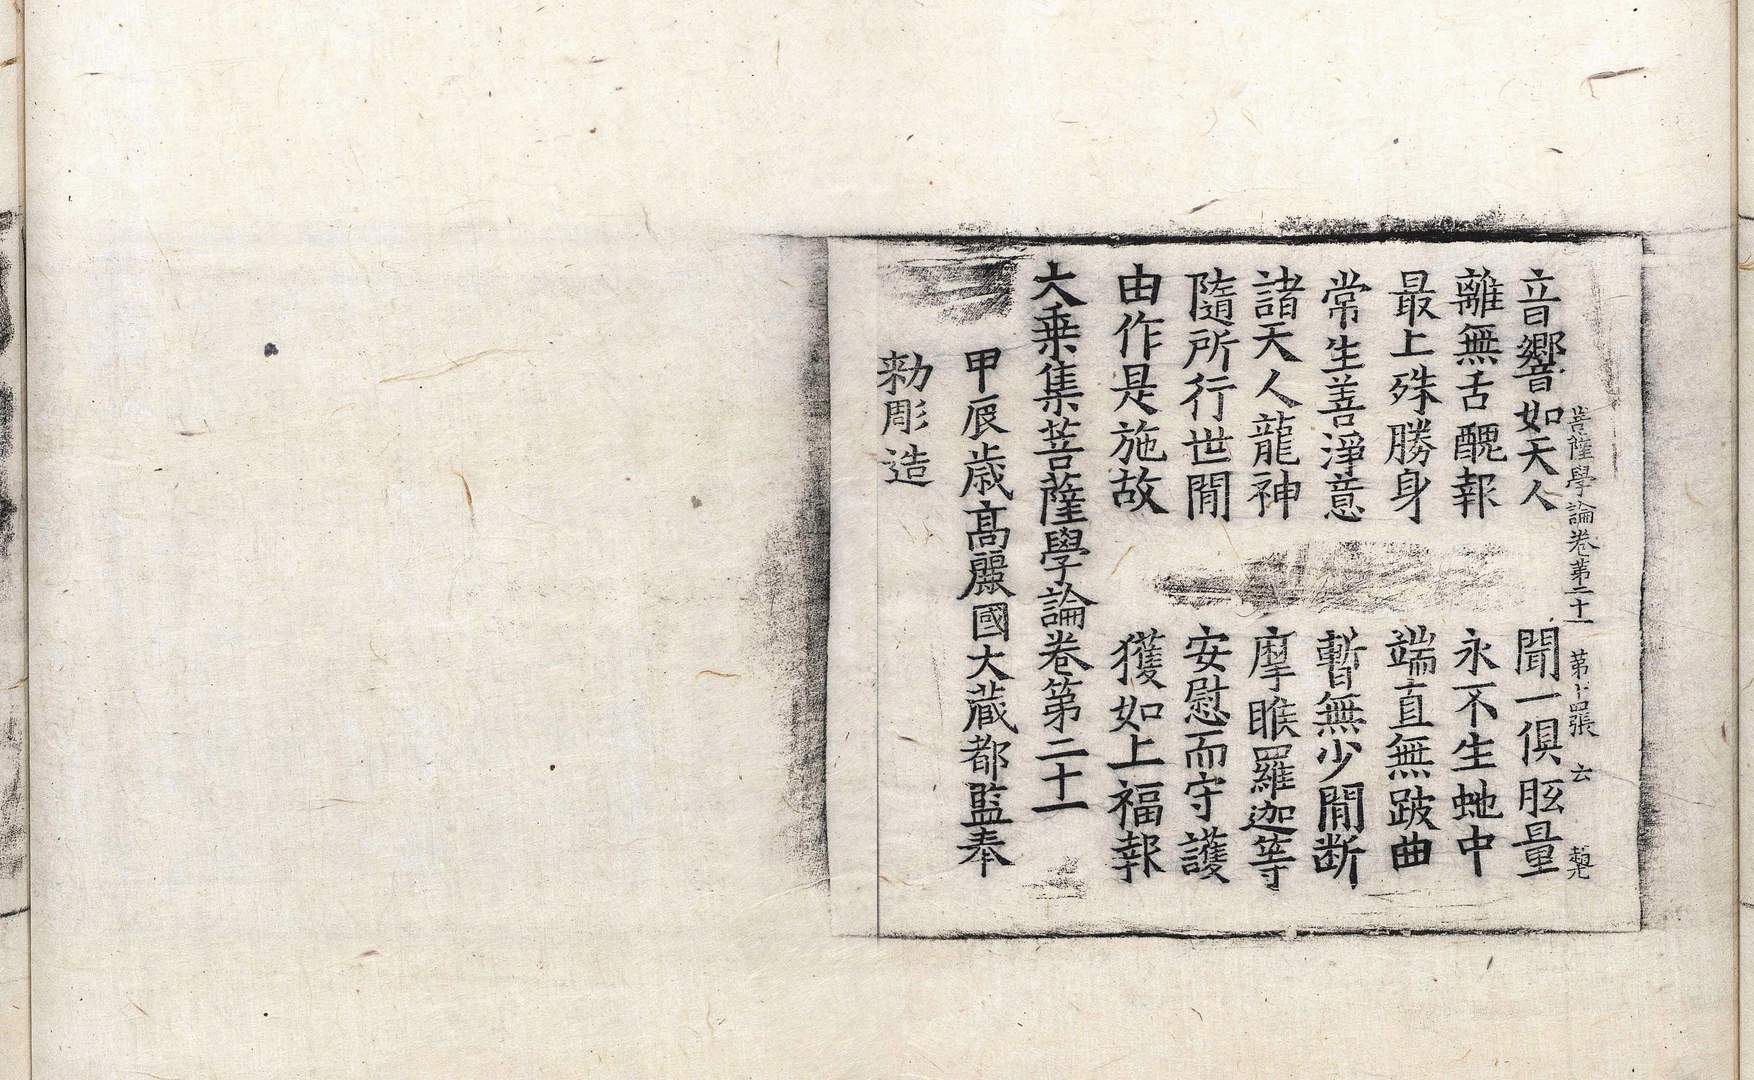 菩薩學論卷第二十一 第十四張 云
音響如天人 聞一俱胝量
離無舌醜報 永不生虵中
最上殊勝身 端直無跛曲
常生善淨意 暫無少閒断
諸天人龍神 摩睺羅迦等
隨所行世閒 安慰而守護
由作是施故 獲如上福報
大乗集菩薩學論卷第二十一
甲辰歲高麗國大藏都監奉
勑彫造